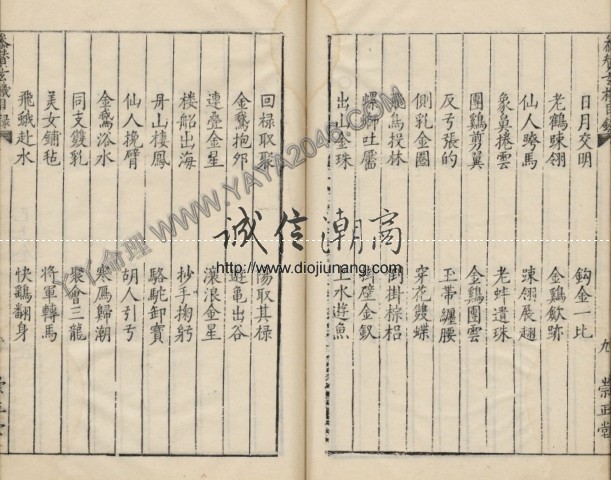 日月交明
鈎金一比
老鶴晾翎
金鷄斂跡
仙人騎馬
竦翎展翅
象鼻捲雲
老蚌遺珠
團鷄剪翼
金鷄團雲
反弓張的
玉帶纏腰
側乳金圈
穿花雙蝶
投林
倒掛棕梠
吐靨
壁金釵
出山金珠
上水遊魚
回祿取聚
陽取其祿
金鵞抱夘
遊龜出谷
連疊金星
滾浪金星
樓船出海
抄手掬躬
丹山棲鳳
駱駝卸寶
仙人挽臂
胡人引弓
金鵞浴水
寒鴈歸潮
同支雙乳
聚會三龍
美女鋪毡
將軍轉馬
飛蛾赴水
快鷂翻身
九
崇正堂
目錄
誠信潮商
http://www.diojiunang.com
丫丫命理 WWW.YAYA2046.COM